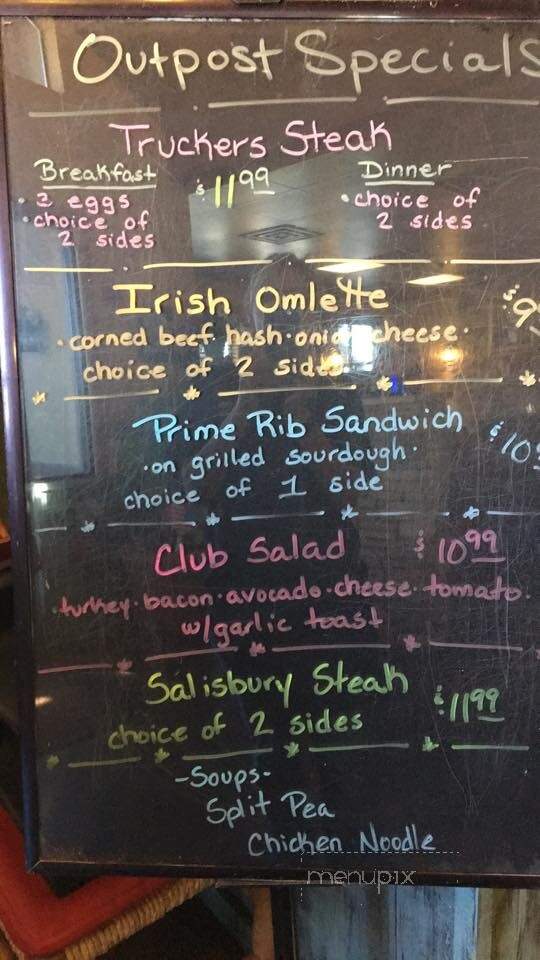 Outpost Specials
Truckers Steak
Breakfast
$11.99
Dinner
• 2 eggs
• choice of
2 sides
• choice of
2 sides
Irish Omlette
$9
• corned beef hash • onion cheese •
choice of 2 sides
Prime Rib Sandwich
$10
• on grilled sourdough •
choice of 1 side
Club Salad
$10.99
• turkey • bacon • avocado • cheese • tomato •
w/garlic toast
Salisbury Steak
$11.99
choice of 2 sides
-Soups-
Split Pea
Chicken Noodle
menupix